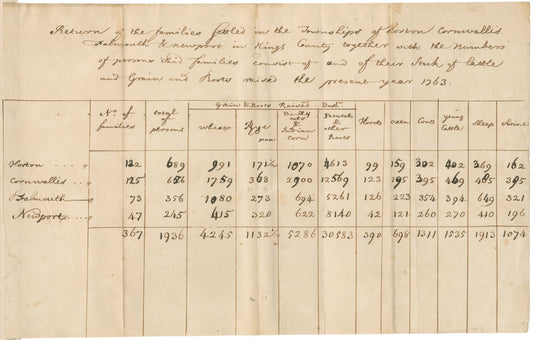 Return of the families settled in the Townships of Horton Cornwallis
Falmouth & Newport in Kings County together with the Numbers
of persons said families consist of and of their Stock of Cattle
and Grain and Roots raised the present year 1763.
Grain & Roots Raised Bush.
No. of families total of persons wheat Rye Barley oats & Indian Corn Potatoes & other Roots Horses oxen Cows young Cattle Sheep Swine
Horton .... " 122 689 991 171½ 1070 4613 99 159 302 402 369 162
Cornwallis .. " 125 656 1759 368 2900 12569 123 195 395 469 485 395
Falmouth .. " 73 356 1080 273 694 5261 126 223 354 394 649 321
Newport .. " 47 245 415 320 622 8140 42 121 260 270 410 196
367 1936 4245 1132½ 5286 30583 390 698 1311 1535 1913 1074